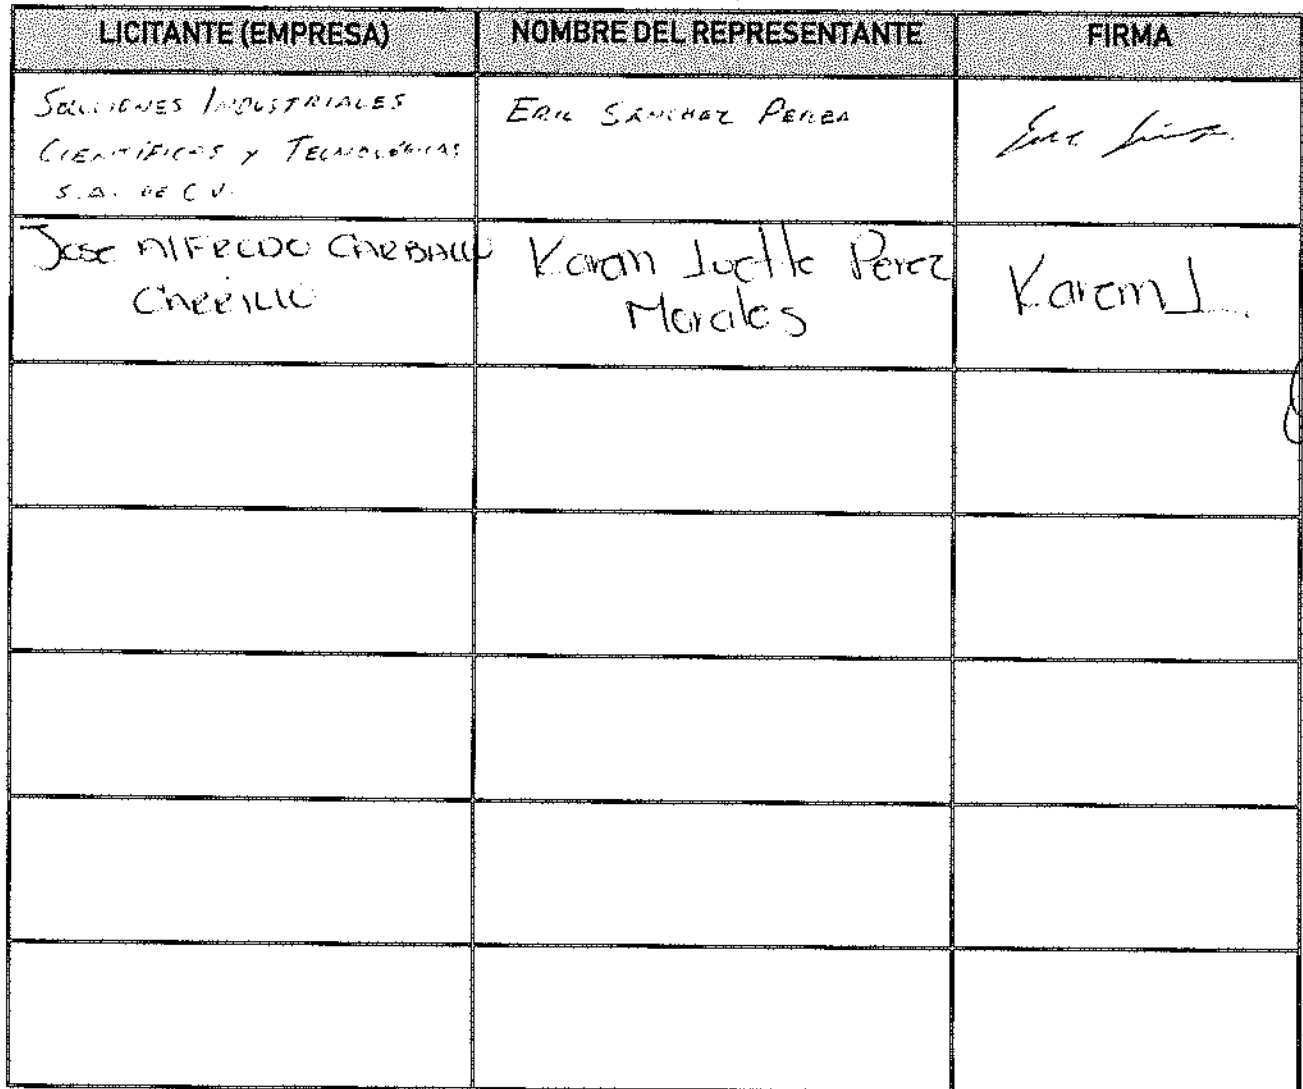 LICITANTE (EMPRESA)
NOMBRE DEL REPRESENTANTE
FIRMA
SOLUCIONES INDUSTRIALES
CIENTÍFICAS Y TECNOLÓGICAS
S.A. DE C.V.
ERIC SANCHEZ PEREA
JOSE AlFREDO CARBALLO
CARRILLO
Karem Perez
Morales
Karem